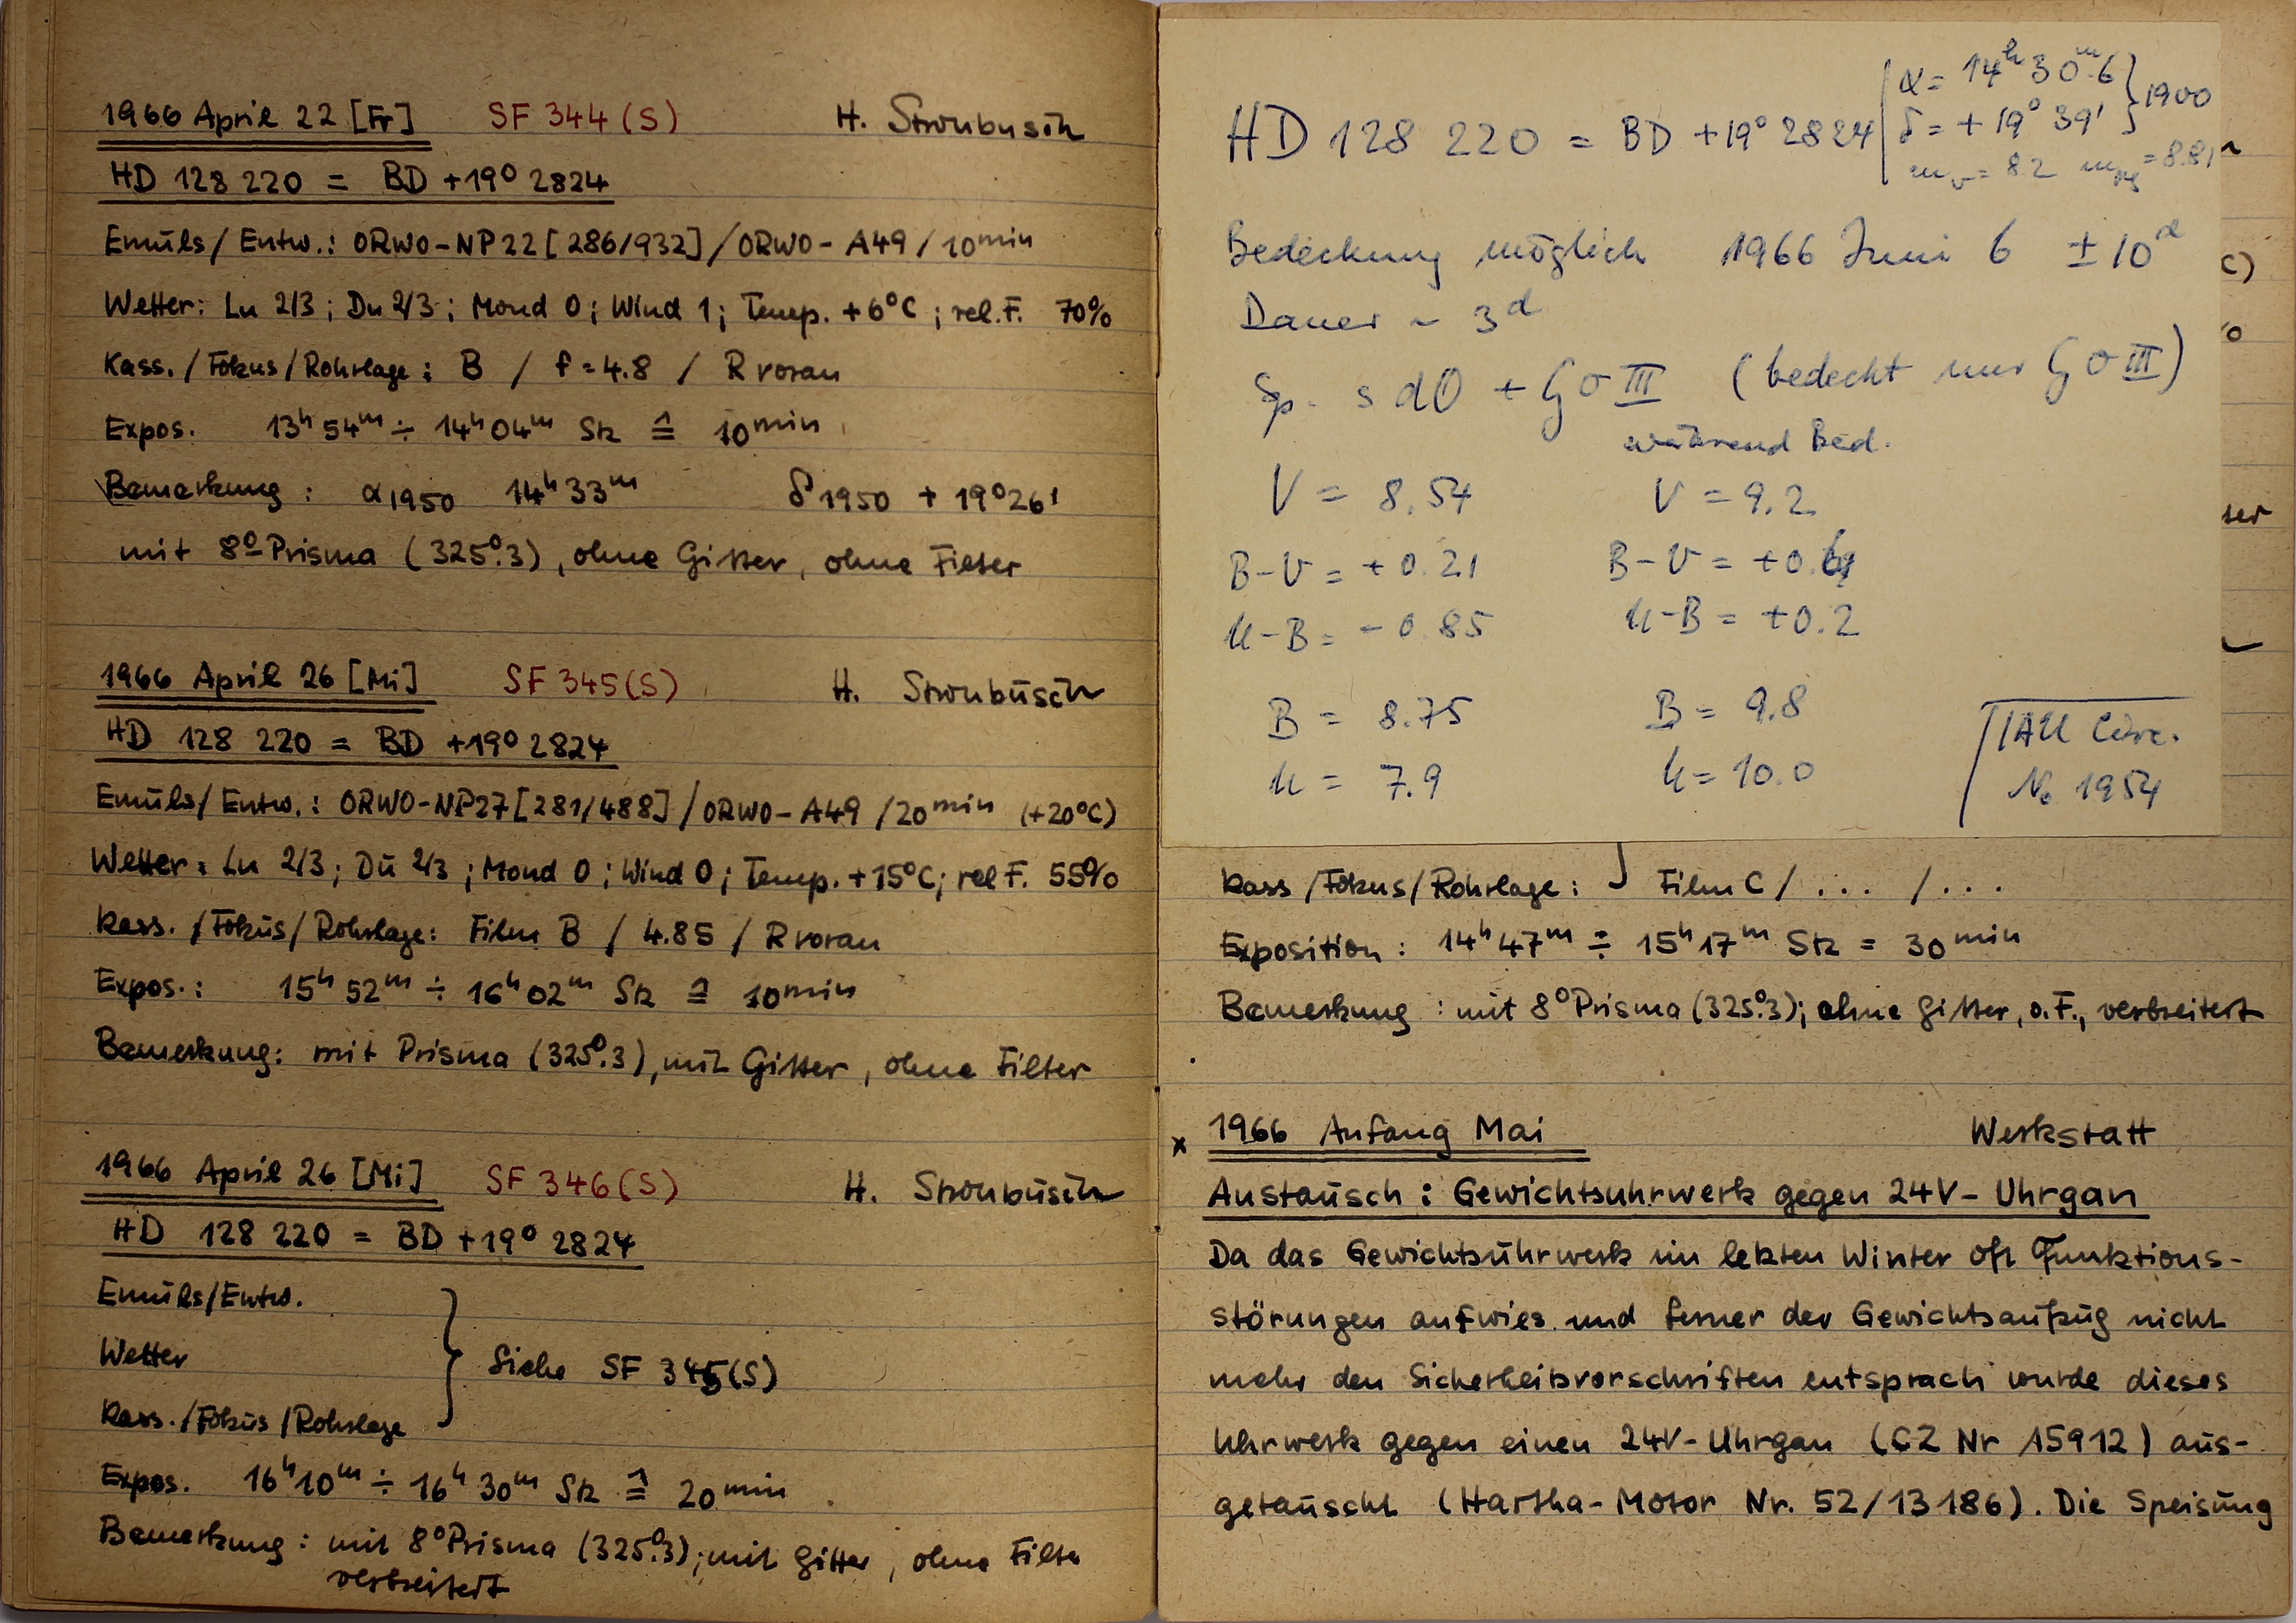 1966 April 22 [Fr] SF 344 (S) H. Stroubusch
HD 128 220 = BD +19° 2824
Emuls/Entw.: ORWO-NP22 [286/932] / ORWO-A49 / 10min
Wetter: Lu 2/3; Du 2/3; Mond 0; Wind 1; Temp. +6°C; rel. F. 70%
Kass. / Fokus / Rohrlage: B / f = 4.8 / R voran
Expos. 13h 54m ÷ 14h 04m Stz ≙ 10min
Bemerkung: α1950 14h 33m δ1950 + 19°26'
mit 8° Prisma (325°.3), ohne Gitter, ohne Filter
1966 April 26 [Mi] SF 345 (S) H. Stroubusch
HD 128 220 = BD +19° 2824
Emuls/Entw.: ORWO-NP27 [281/488] / ORWO-A49 / 20min (+20°C)
Wetter: Lu 2/3; Du 2/3; Mond 0; Wind 0; Temp. +15°C; rel F. 55%
Kass. / Fokus / Rohrlage: Film B / 4.85 / R voran
Expos.: 15h 52m ÷ 16h 02m Stz ≙ 10min
Bemerkung: mit Prisma (325°.3), mit Gitter, ohne Filter
1966 April 26 [Mi] SF 346 (S) H. Stroubusch
HD 128 220 = BD +19° 2824
Emuls/Entw.
Wetter
Kass. / Fokus / Rohrlage } Siehe SF 345 (S)
Expos. 16h 10m ÷ 16h 30m Stz ≙ 20min
Bemerkung: mit 8° Prisma (325°.3); mit Gitter, ohne Filter
verbreitert
HD 128 220 = BD +19° 2824
α = 14h 30m.6
δ = +19° 39' } 1900
mv = 8.2 mpg = 8.81
Bedeckung möglich 1966 Juni 6 ± 10d
Dauer ~ 3d
Sp. sdO + G0 III (bedeckt nur G0 III)
während Bed.
V = 8.54 V = 9.2
B-V = +0.21 B-V = +0.6
U-B = -0.85 U-B = +0.2
B = 8.75 B = 9.8
U = 7.9 U = 10.0
IAU Circ.
No 1954
Kass / Fokus / Rohrlage: } Film C / ... / ...
Exposition: 14h 47m ÷ 15h 17m Stz = 30min
Bemerkung: mit 8° Prisma (325°.3); ohne Gitter, o. F., verbreitert
x 1966 Anfang Mai Werkstatt
Austausch: Gewichtsuhrwerk gegen 24V-Uhrgan
Da das Gewichtsuhrwerk im letzten Winter oft Funktions-
störungen aufwies und ferner der Gewichtsaufzug nicht
mehr den Sicherheitsvorschriften entsprach wurde dieses
Uhrwerk gegen einen 24V-Uhrgan (CZ Nr 15912) aus-
getauscht (Hartha-Motor Nr. 52/13186). Die Speisung